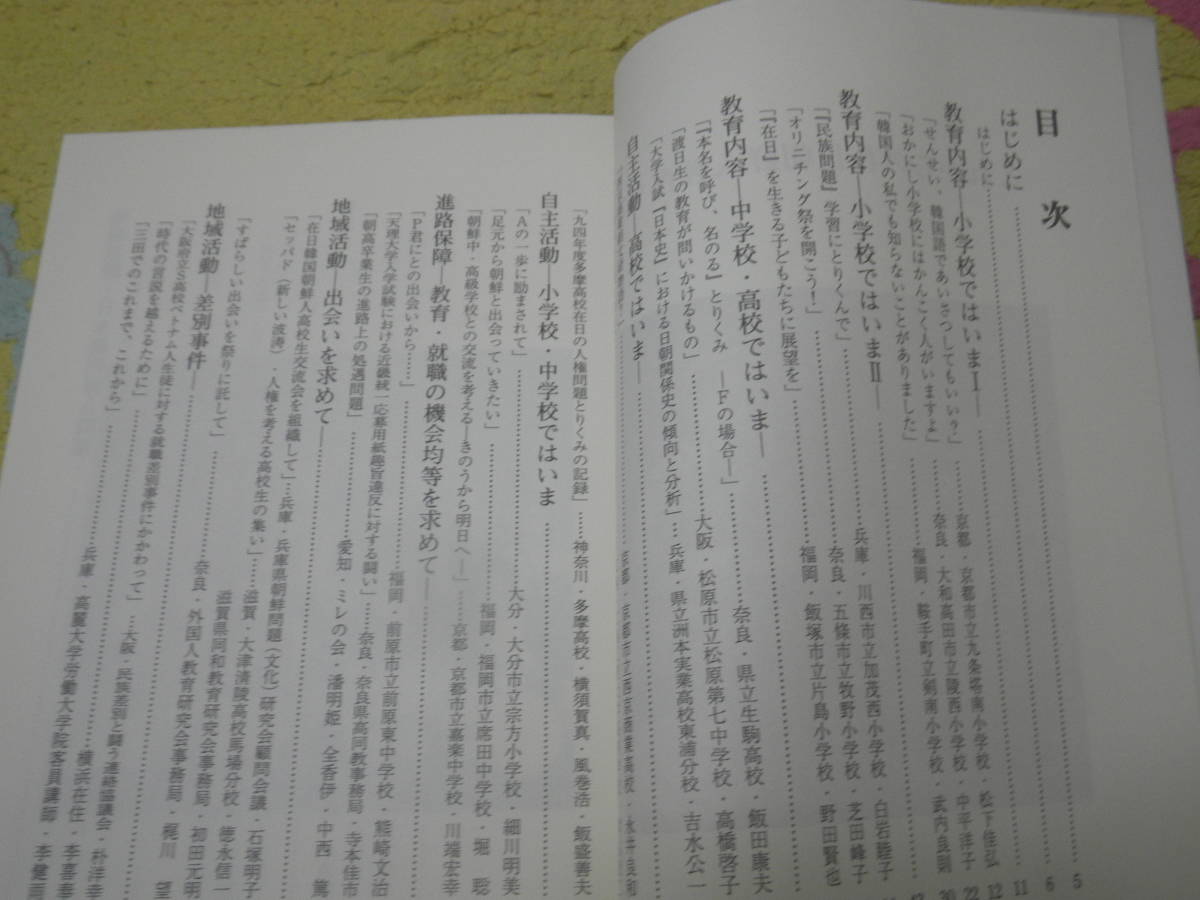 目次
はじめに…………5
はじめに…………6
教育内容―小学校ではいまⅠ―…………11
「せんせい、韓国語であいさつしてもいい？」…………京都・京都市立九条塔南小学校・松下佳弘 12
「おかにし小学校にはかんこく人がいますよ」…………奈良・大和高田市立陵西小学校・中平洋子 22
「韓国人の私でも知らないことがありました」…………福岡・鞍手町立剣南小学校・武内良則 30
教育内容―小学校ではいまⅡ―
「『民族問題』学習にとりくんで」…………兵庫・川西市立加茂西小学校・白岩睦子
「オリニチング祭を開こう！」…………奈良・五條市立牧野小学校・芝田峰子
「『在日』を生きる子どもたちに展望を」…………福岡・飯塚市立片島小学校・野田賢也
教育内容―中学校・高校ではいま―
「『本名を呼び、名のる』とりくみ ―Fの場合―」…………奈良・県立生駒高校・飯田康夫
「渡日生の教育が問いかけるもの」…………大阪・松原市立松原第七中学校・高橋啓子
「大学入試【日本史】における日朝関係史の傾向と分析」…………兵庫・県立洲本実業高校東浦分校・吉水公一
自主活動―高校ではいま―
「九四年度多摩高校在日の人権問題とりくみの記録」……神奈川・多摩高校・横須賀真・風巻浩・飯盛善夫
自主活動―小学校・中学校ではいま
「Aの一歩に励まされて」…………大分・大分市立宗方小学校・細川明美
「足元から朝鮮と出会っていきたい」…………福岡・福岡市立席田中学校・堀 聡
「朝鮮中・高級学校との交流を考える―きのうから明日へ―」…………京都・京都市立嘉楽中学校・川端宏幸
進路保障―教育・就職の機会均等を求めて―
「P君にとの出会いから……」…………福岡・前原市立前原東中学校・熊崎文治
「天理大学入学試験における近畿統一応募用紙趣旨違反に対する闘い」……奈良・奈良県高同教事務局・寺本佳市
「朝高卒業生の進路上の処遇問題」…………愛知・ミレの会・潘明姫・全香伊・中西 篤
地域活動―出会いを求めて―
「在日韓国朝鮮人高校生交流会を組織して」…兵庫・兵庫県朝鮮問題（文化）研究会顧問会議・石塚明子
「セッパド（新しい波涛）・人権を考える高校生の集い」……滋賀・大津清陵高校馬場分校・徳永信一
「すばらしい出会いを祭りに託して」…………滋賀県同和教育研究会事務局・初田元明
地域活動―差別事件―…………奈良・外国人教育研究会事務局・梶川 望
「大阪府立S高校ベトナム人生徒に対する就職差別事件にかかわって」…大阪・民族差別と闘う連絡協議会・朴洋幸
「時代の言説を越えるために」…………横浜在住・李喜奉
「三田でのこれまで、これから」…………兵庫・高麗大学労働大学院客員講師・李健雨